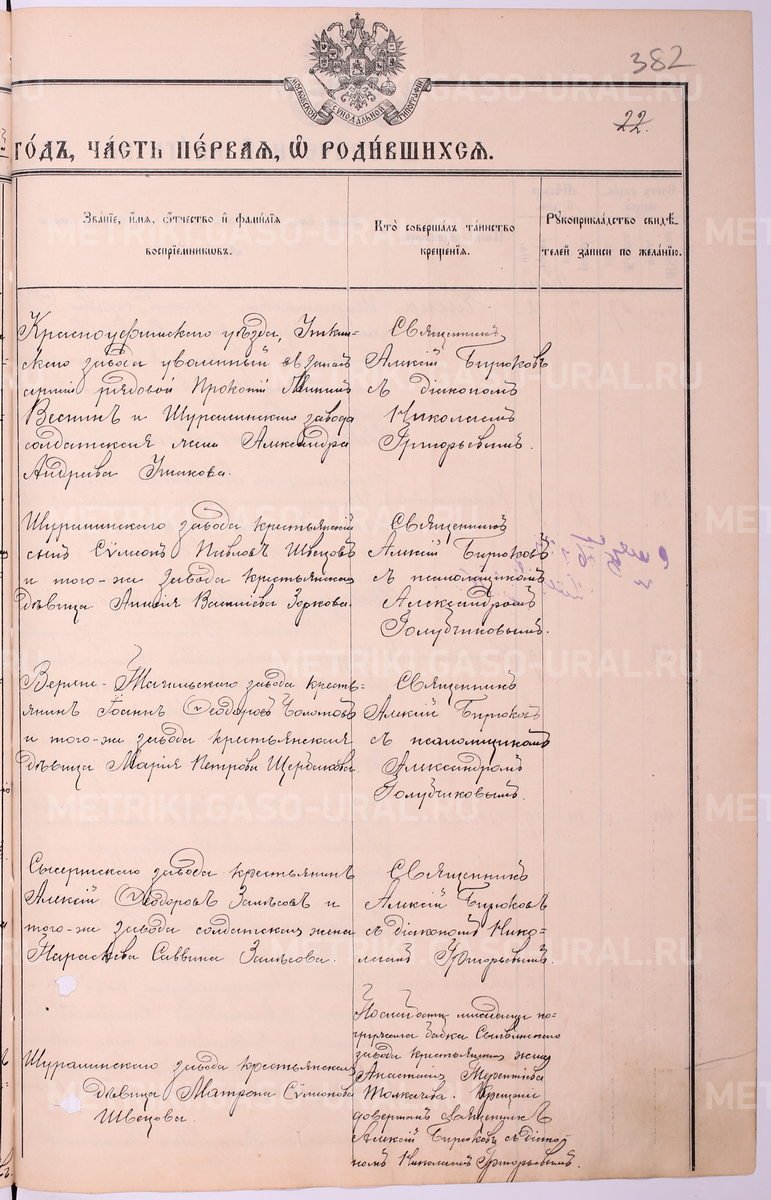 382
22.
МОСКОВСКОЙ СѴНОДАЛЬНОЙ ТИПОГРАФІИ
ГОДЪ, ЧАСТЬ ПЕРВАЯ, Ѡ РОДИВШИХСЯ.
Званіе, имя, отчество и фамилія
воспріемниковъ.
Кто совершалъ таинство
крещенія.
Рукоприкладство свидѣ-
телей записи по желанію.
Красноуфимскаго уѣзда,
скаго завода уволенный въ запасъ
арміи рядовой Прокопій
Веснинъ и Шуралинскаго завода
солдатская жена Александра
Андреева
Священникъ
Алексій Бирюковъ
съ діакономъ
Николаемъ
Григорьевымъ.
Шуралинскаго завода крестьянскій
сынъ Сѵмеонъ Павловъ Швецовъ
и того-же завода крестьянская
дѣвица Василіева Зоркова.
Священникъ
Алексій Бирюковъ
съ псаломщикомъ
Александромъ
Голубчиковымъ.
Верхне-Тагильскаго завода кресть-
янинъ Іоаннъ Ѳеодоровъ Золотовъ
и того-же завода крестьянская
дѣвица Марія Петрова Щербакова
Священникъ
Алексій Бирюковъ
съ псаломщикомъ
Александромъ
Голубчиковымъ.
Сысертскаго завода крестьянинъ
Алексій Ѳеодоровъ и
того-же завода солдатская жена
Параскева Саввина
Священникъ
Алексій Бирюковъ
съ діакономъ Нико-
лаемъ Григорьевымъ.
Шуралинскаго завода крестьянская
дѣвица Матрона Сѵмеонова
Швецова.
по-
гружала бабка
завода крестьянская жена
Анастасія Терентіева
Толкачева. Крещеніе
довершилъ священникъ
Алексій Бирюковъ съ діако-
номъ Николаемъ Григорьевымъ.
METRIKI.GASO-URAL.RU